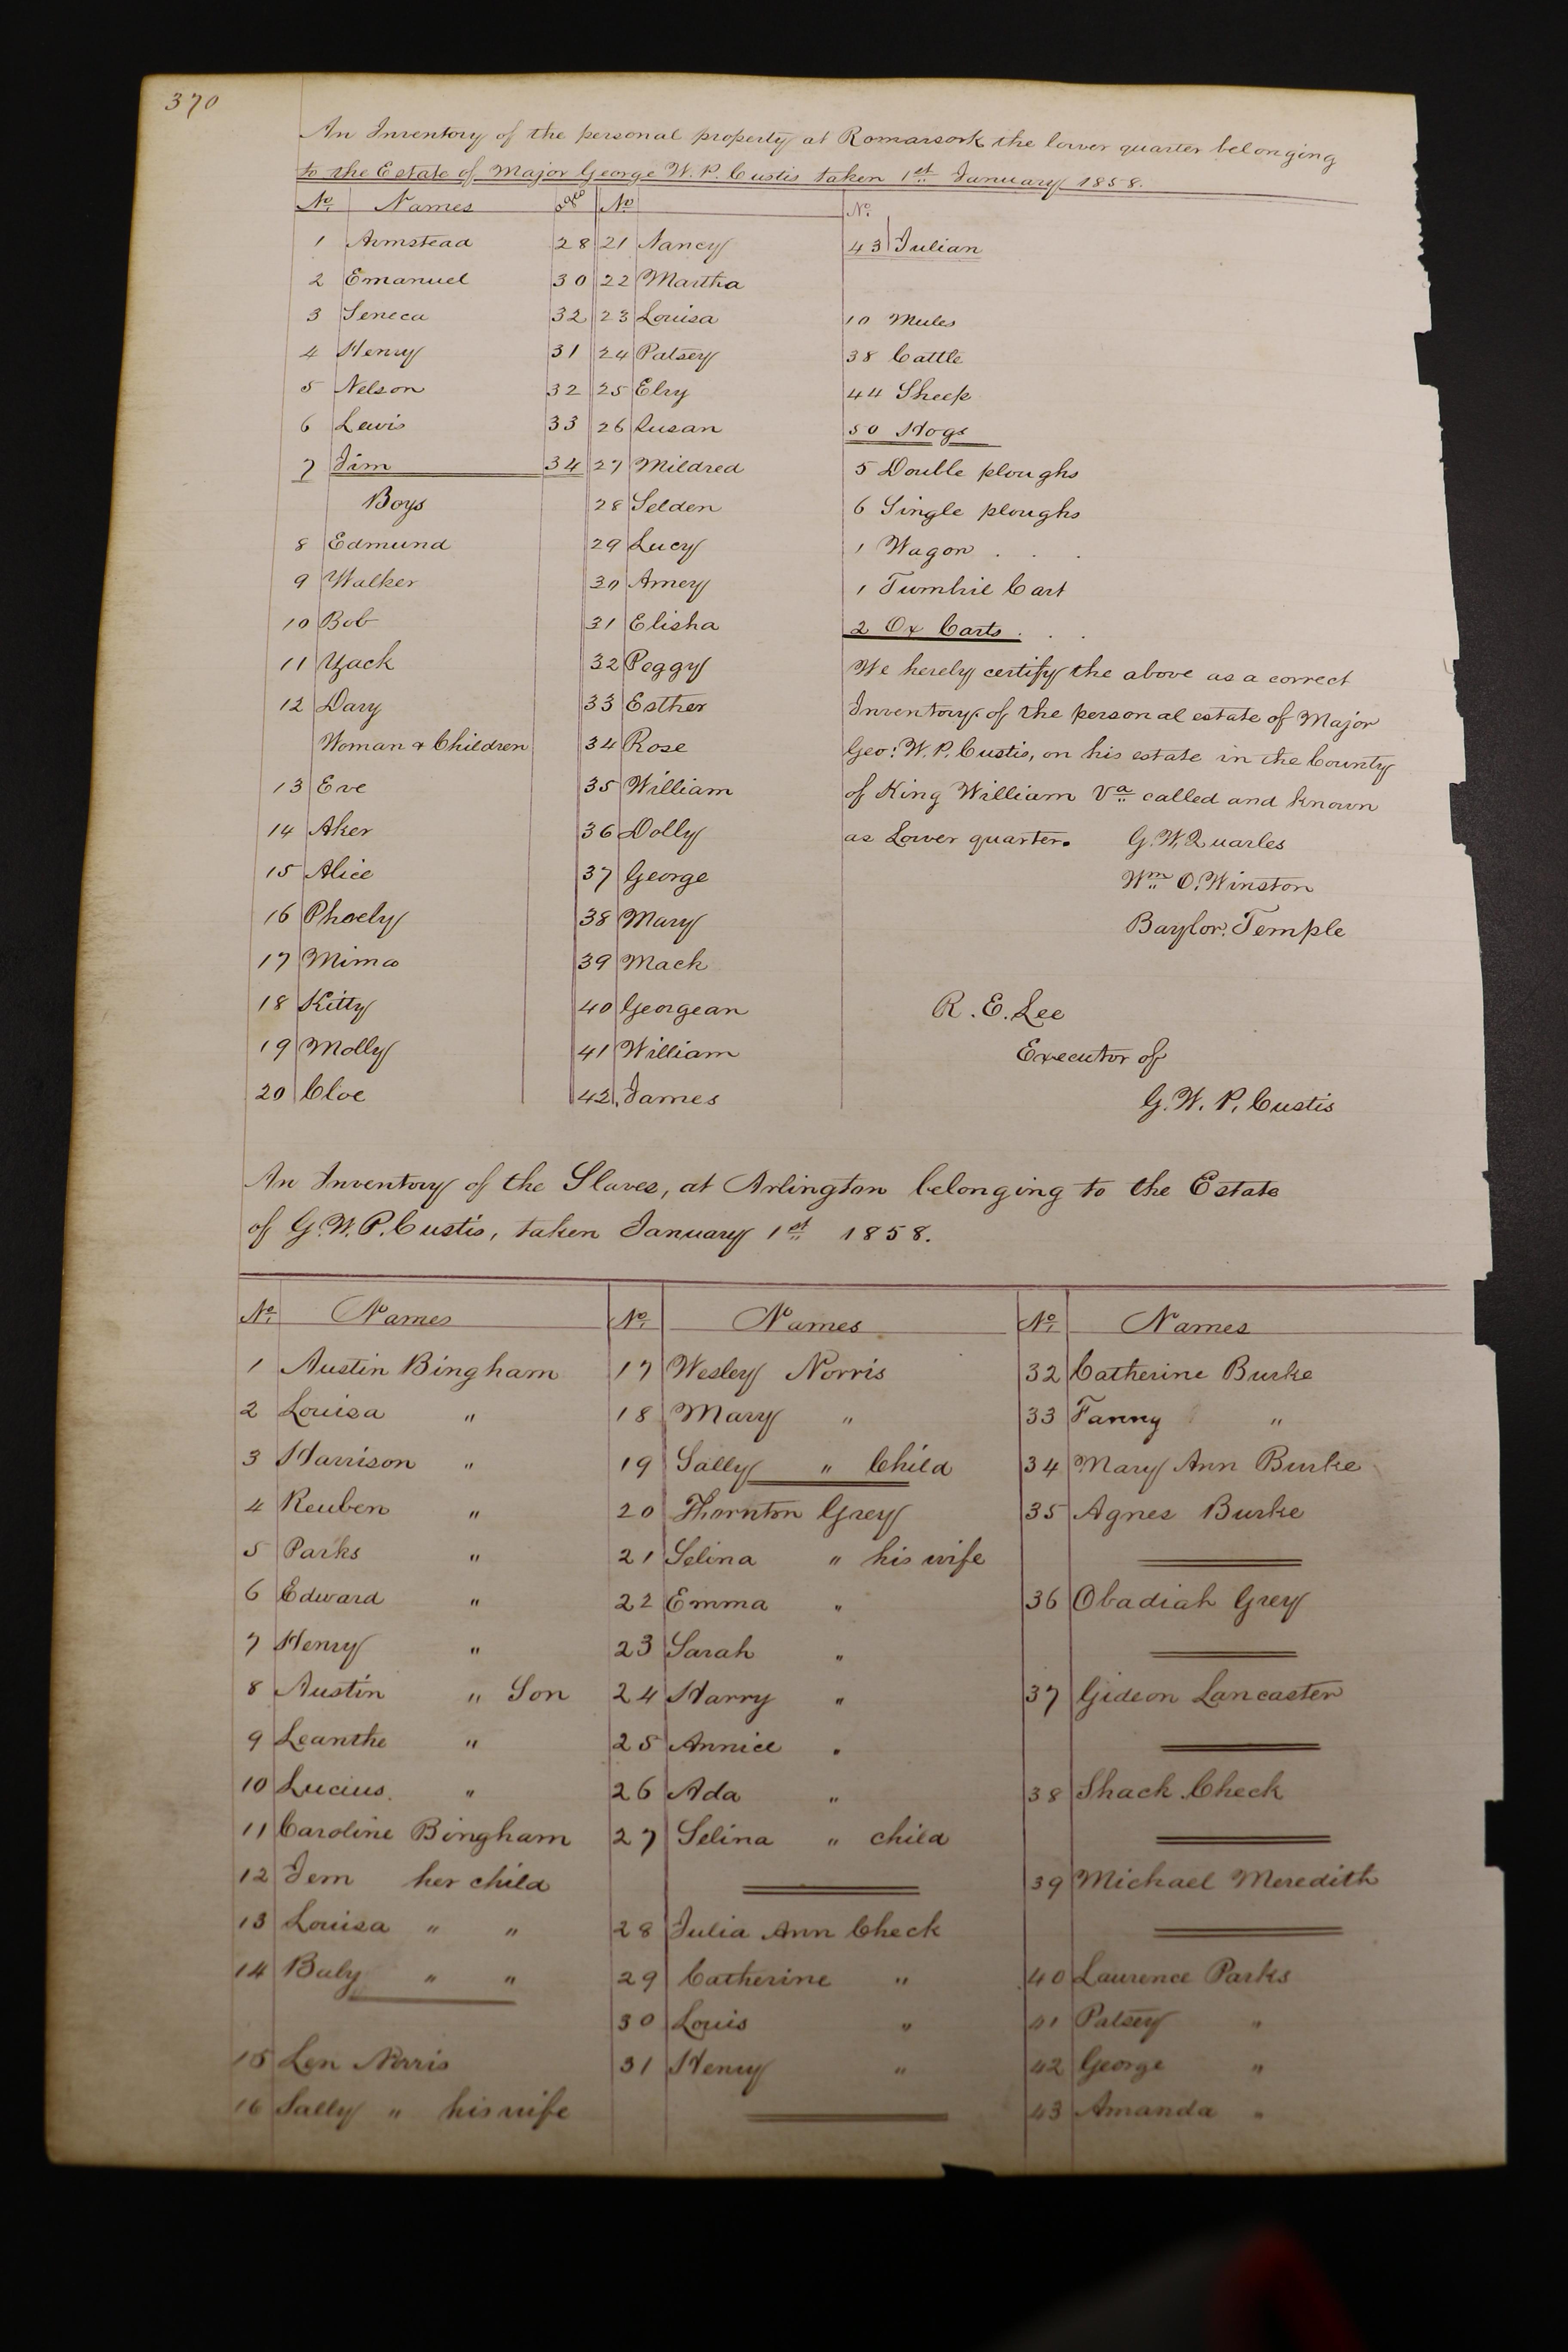 370
An Inventory of the personal property at Romancock the lower quarter belonging
to the Estate of Major George W. P. Custis taken 1st January 1858.
No. Names Age No No.
1 Armstead 28 21 Nancy 43 Julian
2 Emanuel 30 22 Martha
3 Seneca 32 23 Louisa 10 Mules
4 Henry 31 24 Patsey 38 Cattle
5 Nelson 32 25 Elry 44 Sheep
6 Lewis 33 26 Susan 50 Hogs
7 Jim 34 27 Mildred 5 Double ploughs
Boys 28 Selden 6 Single ploughs
8 Edmund 29 Lucy 1 Wagon . . .
9 Walker 30 Amey 1 Tumbril Cart
10 Bob 31 Elisha 2 Ox Carts . . .
11 Zack 32 Peggy We hereby certify the above as a correct
12 Dary 33 Esther Inventory of the personal estate of Major
Woman & Children 34 Rose Geo: W. P. Custis, on his estate in the County
13 Eve 35 William of King William Va called and known
14 Aker 36 Dolly as Lower quarter. G. W. Quarles
15 Alice 37 George Wm O. Winston
16 Phoeby 38 Mary Baylor. Temple
17 Mima 39 Mack
18 Kitty 40 Georgean R. E. Lee
19 Molly 41 William Executor of
20 Cloe 42. James G. W. P. Custis
An Inventory of the Slaves, at Arlington belonging to the Estate
of G. W. P. Custis, taken January 1st 1858.
No. Names No. Names No. Names
1 Austin Bingham 17 Wesley Norris 32 Catherine Burke
2 Louisa " 18 Mary " 33 Fanny "
3 Harrison " 19 Sally " Child 34 Mary Ann Burke
4 Reuben " 20 Thornton Grey 35 Agnes Burke
5 Parks " 21 Selina " his wife
6 Edward " 22 Emma " 36 Obadiah Grey
7 Henry " 23 Sarah "
8 Austin " Son 24 Harry " 37 Gideon Lancaster
9 Leanthe " 25 Annice "
10 Lucius. " 26 Ada " 38 Shack Check
11 Caroline Bingham 27 Selina " child
12 Jem her child 39 Michael Meredith
13 Louisa " " 28 Julia Ann Check
14 Baby " " 29 Catherine " 40 Laurence Parks
30 Louis " 41 Patsey "
15 Len Norris 31 Henry " 42 George "
16 Sally " his wife 43 Amanda "